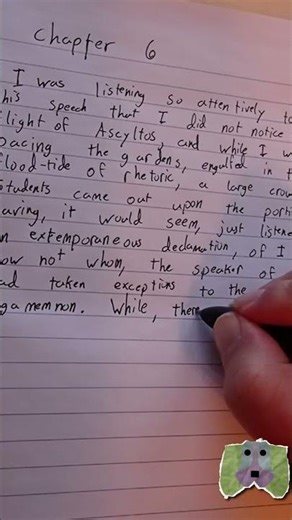 Chapter 6
I was listening so attentively to
his speech that I did not notice
flight of Ascyltos, and while I w
pacing the gardens, engulfed in t
flood-tide of rhetoric, a large crow
students came out upon the porti
aving, it would seem, just listene
n extemporaneous declamation, of I
now not whom, the speaker of
ad taken exceptions to the
gamemnon. While, there